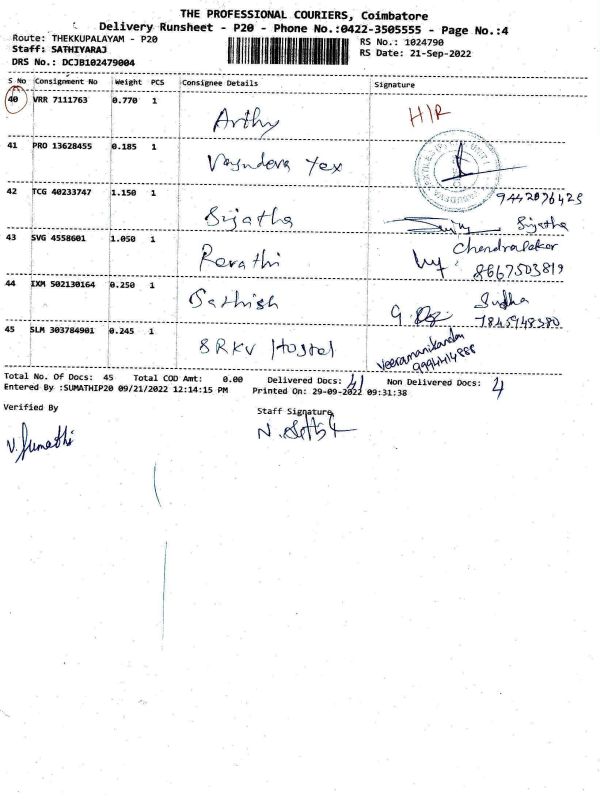 THE PROFESSIONAL COURIERS, Coimbatore
Delivery Runsheet - P20 - Phone No.:0422-3505555 - Page No.:4
Route: THEKKUPALAYAM - P20
RS No.: 1024790
Staff: SATHIYARAJ
RS Date: 21-Sep-2022
DRS No.: DCJB102479004
S No Consignment No Weight PCS Consignee Details Signature
40 VRR 7111763 0.770 1 Arthy H/R
41 PRO 13628455 0.185 1 Vasudeva Tex
9442076425
42 TCG 40233747 1.150 1 Sujatha Sujatha
43 SVG 4558601 1.050 1 Revathi Chandrasekar
8667503819
44 IXM 502130164 0.250 1 Sathish Sudha
7845948380
45 SLM 303784901 0.245 1 SRKV Hostel Veeramanikandan
9994414888
Total No. Of Docs: 45 Total COD Amt: 0.00 Delivered Docs: 41 Non Delivered Docs: 4
Entered By :SUMATHIP20 09/21/2022 12:14:15 PM Printed On: 29-09-2022 09:31:38
Verified By Staff Signature
V. Sumathi